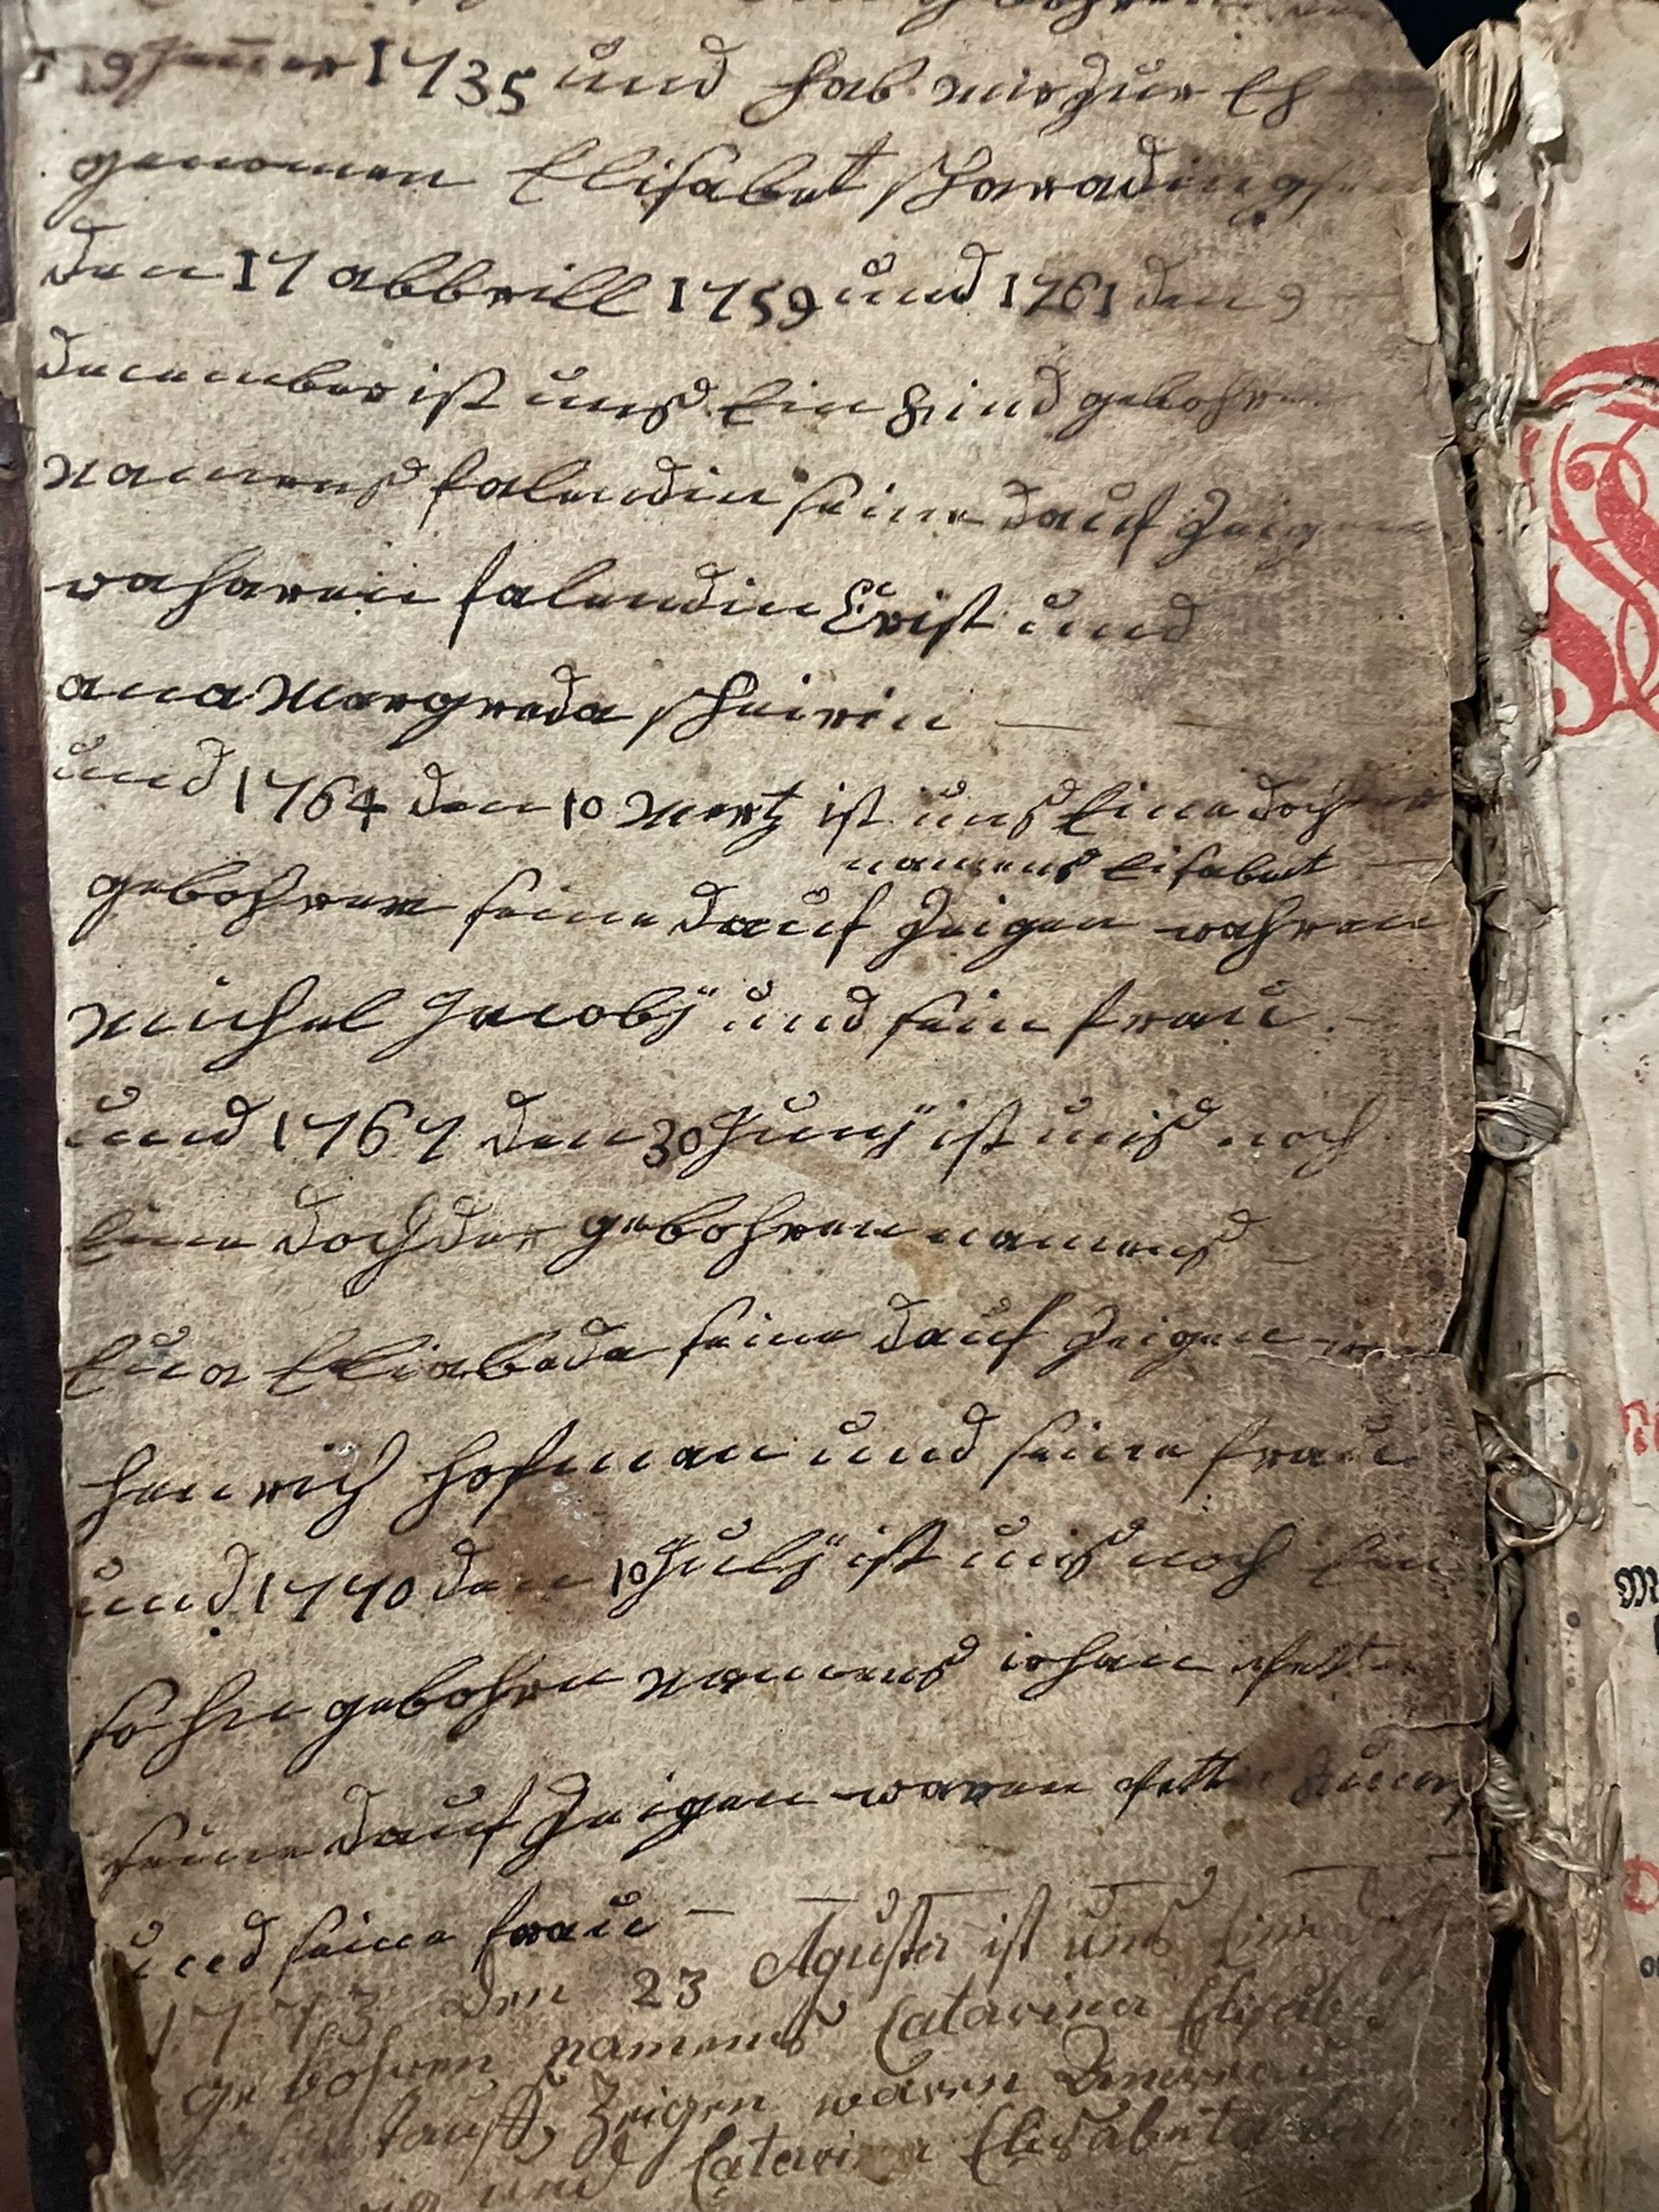 19 Jenner 1735 und hab mir zur Eh
genomen Elisabet
den 17 abbrill 1759 und 1761 den 9
december ist uns Ein Kind gebohren
namens falendin seine dauf Zeigen
waharen falendin Crist und
ana Margreda scheirin
und 1764 den 10 Mertz ist uns Eine dochter
namens Elisabet
gebohren seine dauf Zeigen wahren
Michel Jacobÿ und sein frau
und 1767 den 30 Junÿ ist uns noch
Eine dochder gebohren namens
Eva seine dauf Zeigen
Henrich Hofman und seine frau
und 1770 den 10 Julÿ ist uns noch Ein
sohn gebohrn namens iohan
seine dauf Zeigen waren
und seine frau
1773 den 23 Agusta ist uns Eine
gebohren namens Catarina
tauff Zeigen waren
und Catarina Elisabeta